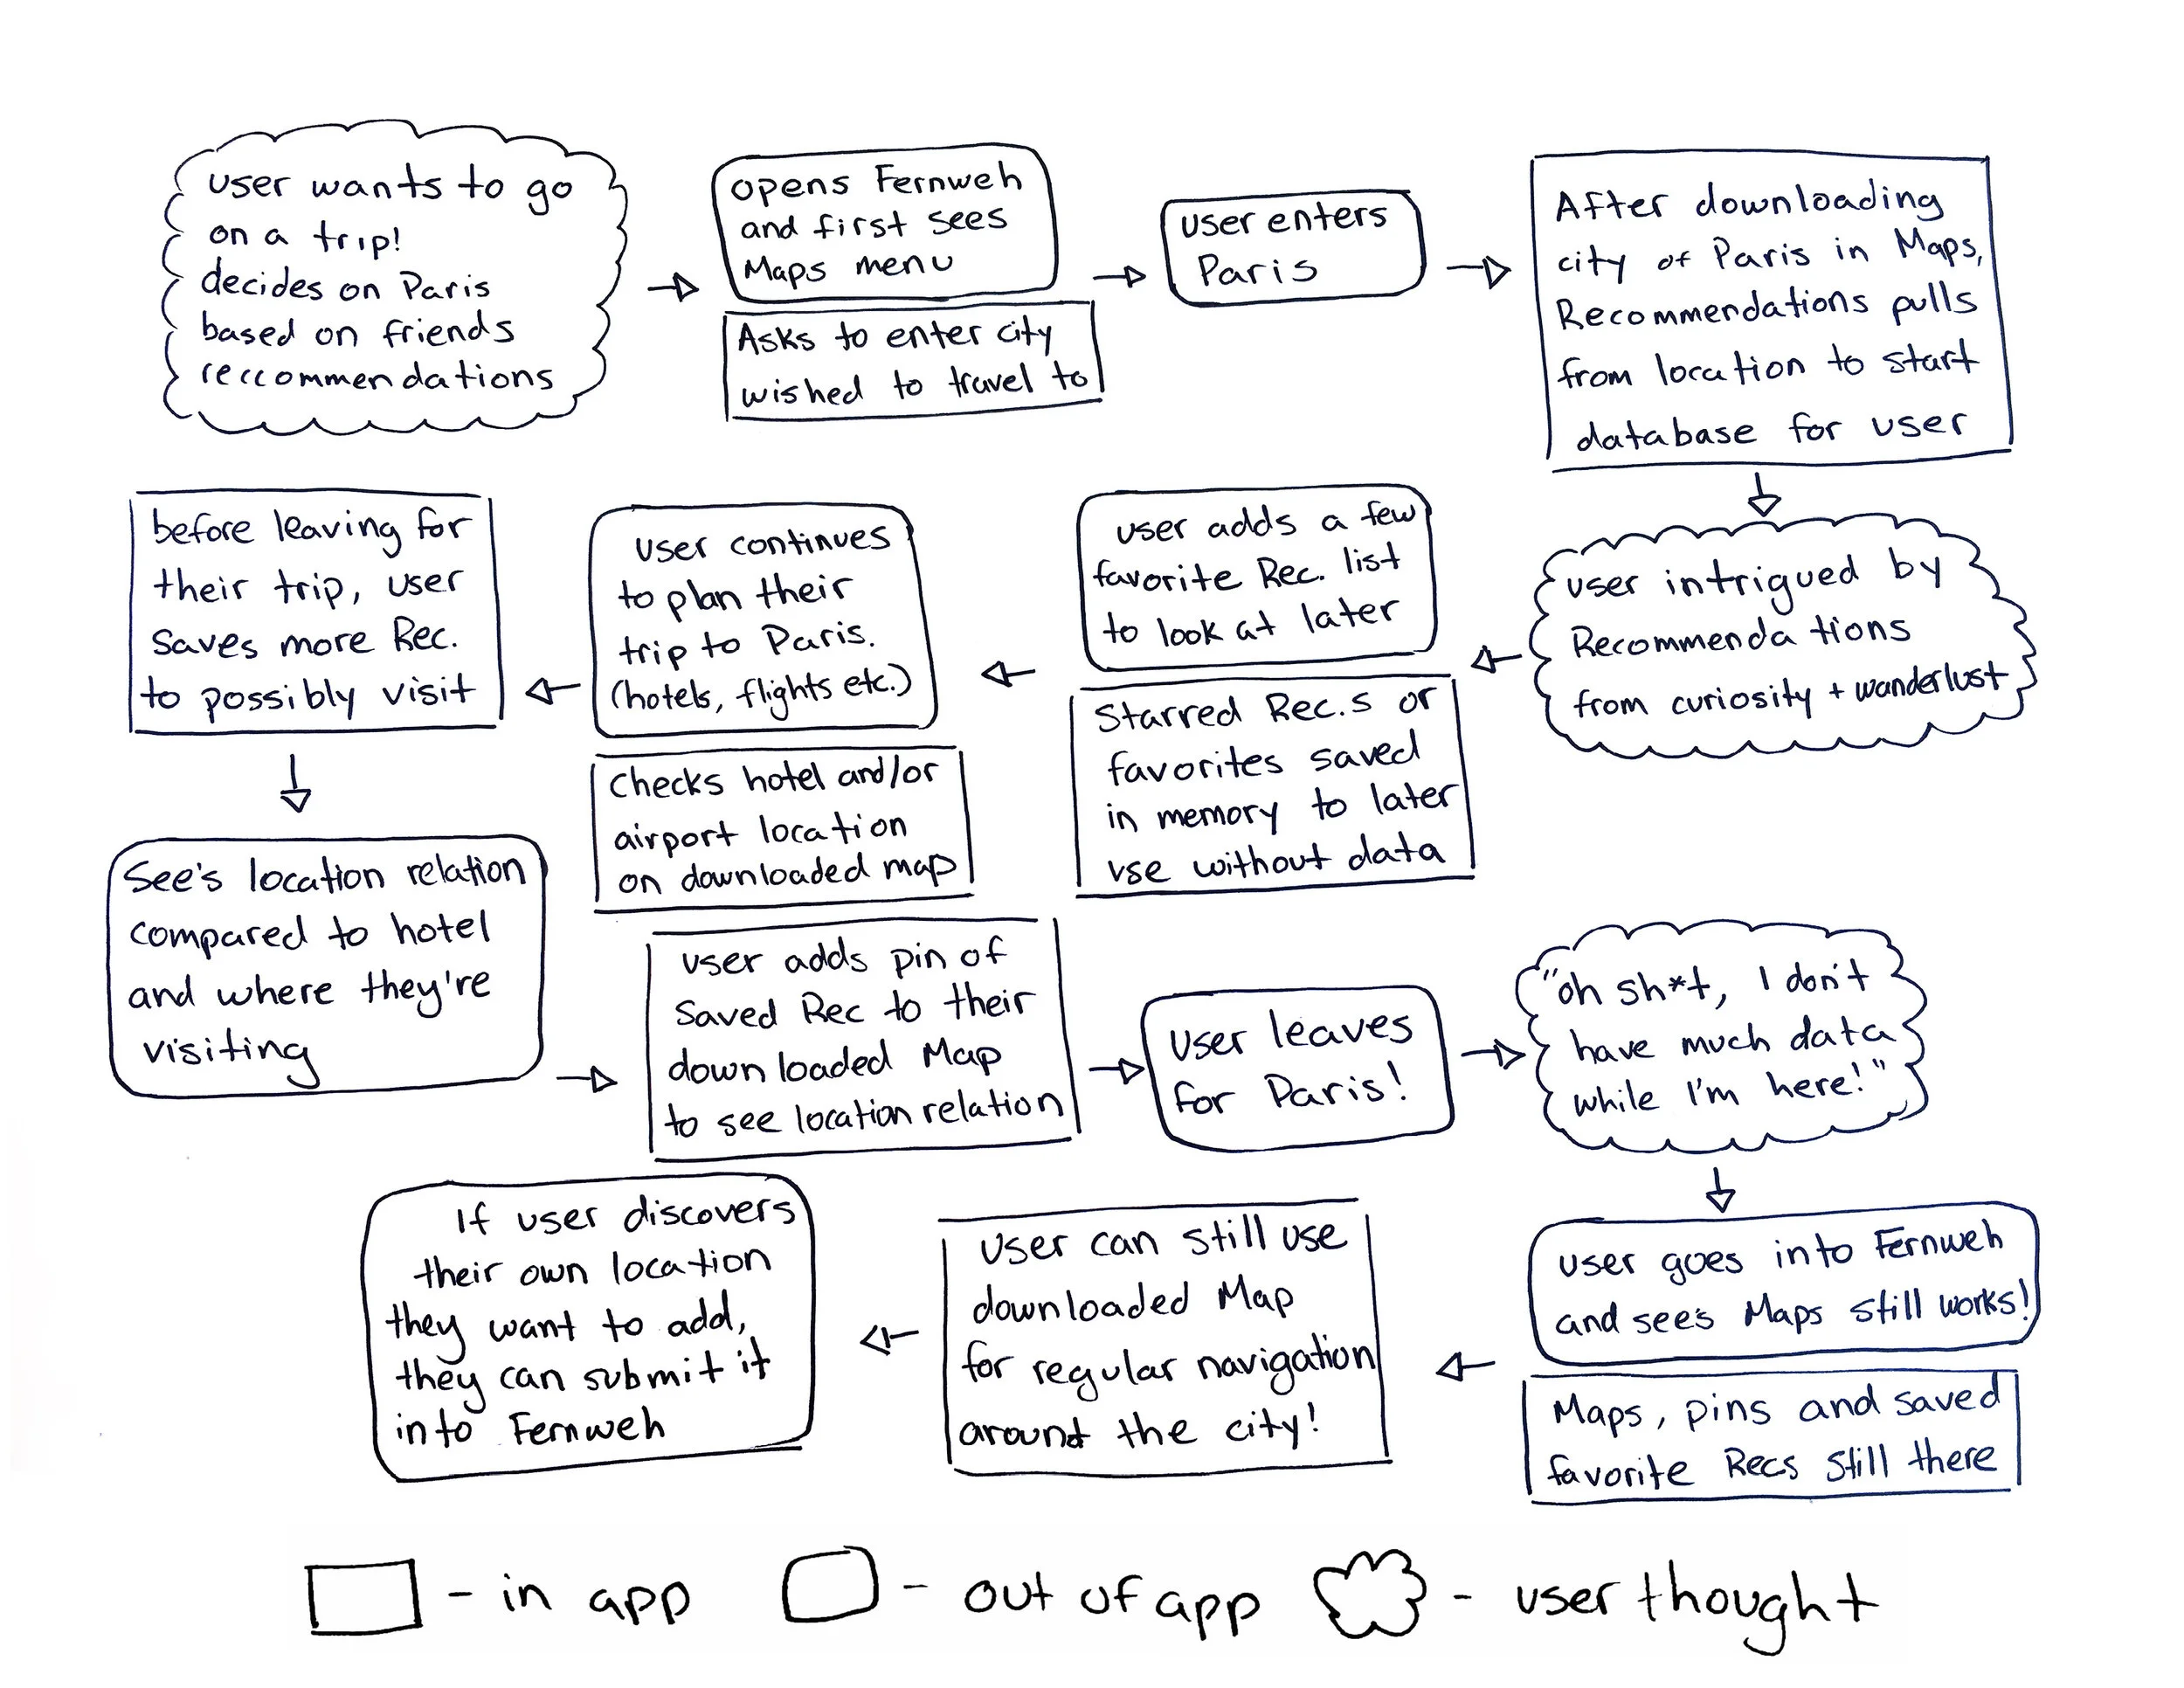 user wants to go
on a trip!
decides on Paris
based on friends
reccommendations
opens Fernweh
and first sees
Maps menu
Asks to enter city
wished to travel to
user enters
Paris
After downloading
city of Paris in Maps,
Recommendations pulls
from location to start
database for user
user intrigued by
Recommendations
from curiosity + wanderlust
user adds a few
favorite Rec. list
to look at later
Starred Rec.s or
favorites saved
in memory to later
use without data
user continues
to plan their
trip to Paris.
(hotels, flights etc.)
Checks hotel and/or
airport location
on downloaded map
before leaving for
their trip, user
saves more Rec.
to possibly visit
See's location relation
compared to hotel
and where they're
visiting
user adds pin of
saved Rec to their
downloaded Map
to see location relation
User leaves
for Paris!
"oh sh*t, I don't
have much data
while I'm here!"
user goes into Fernweh
and see's Maps still works!
Maps, pins and saved
favorite Recs still there
User can still use
downloaded Map
for regular navigation
around the city!
If user discovers
their own location
they want to add,
they can submit it
into Fernweh
- in app
- out of app
- user thought